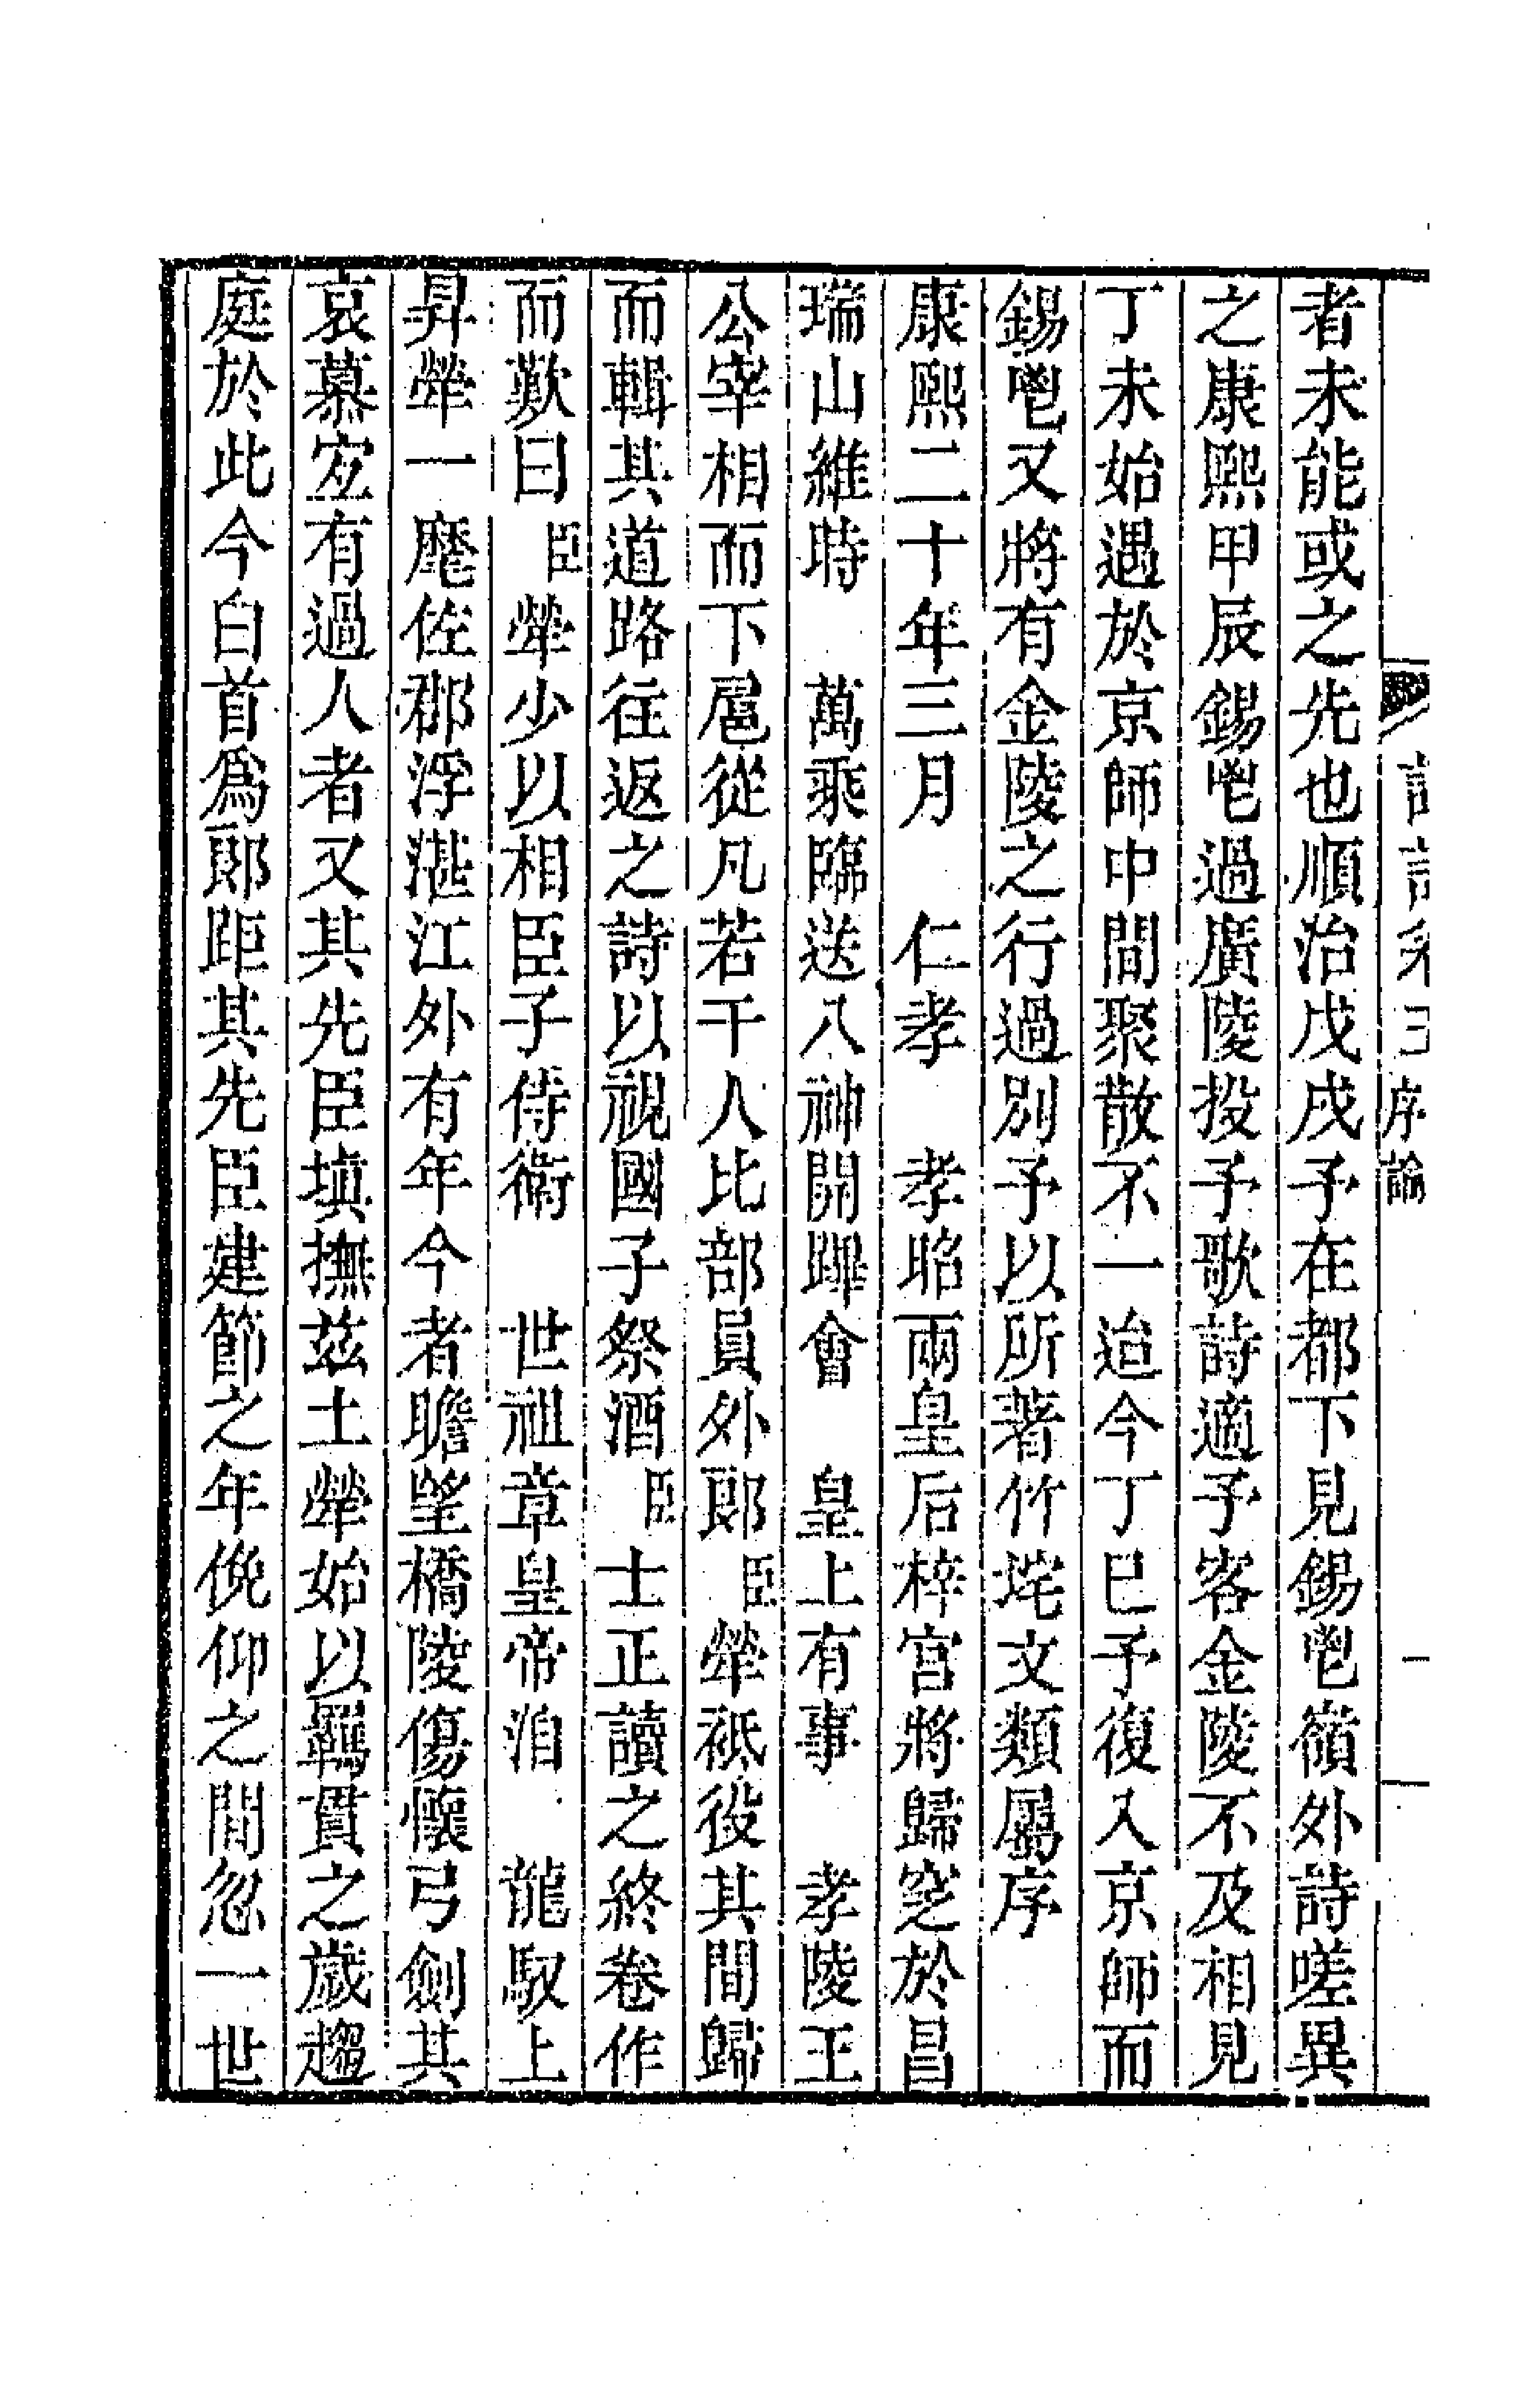 序論
者未能或之先也順治戊戌予在都下見錫鬯嶺外詩嗟異
之康熙甲辰錫鬯過廣陵投予歌詩適予客金陵不及相見
丁未始遇於京師中間聚散不一迨今丁巳予復入京師而
錫鬯又將有金陵之行過別予以所著竹垞文類屬序
康熙二十年三月 仁孝 孝昭兩皇后梓宮將歸窆於昌
瑞山維時 萬乘臨送八神開蹕會 皇上有事 孝陵王
公宰相而下扈從凡若干人比部員外郎臣犖祗役其間歸
而輯其道路往返之詩以視國子祭酒臣士正讀之終卷作
而歎曰臣犖少以相臣子侍衞 世祖章皇帝洎 龍馭上
昇犖一麾佐郡浮湛江外有年今者瞻望橋陵傷懷弓劍其
哀慕宐有過人者又其先臣塡撫茲土犖始以羈貫之歲趨
庭於此今白首爲郞距其先臣建節之年俛仰之間忽一世